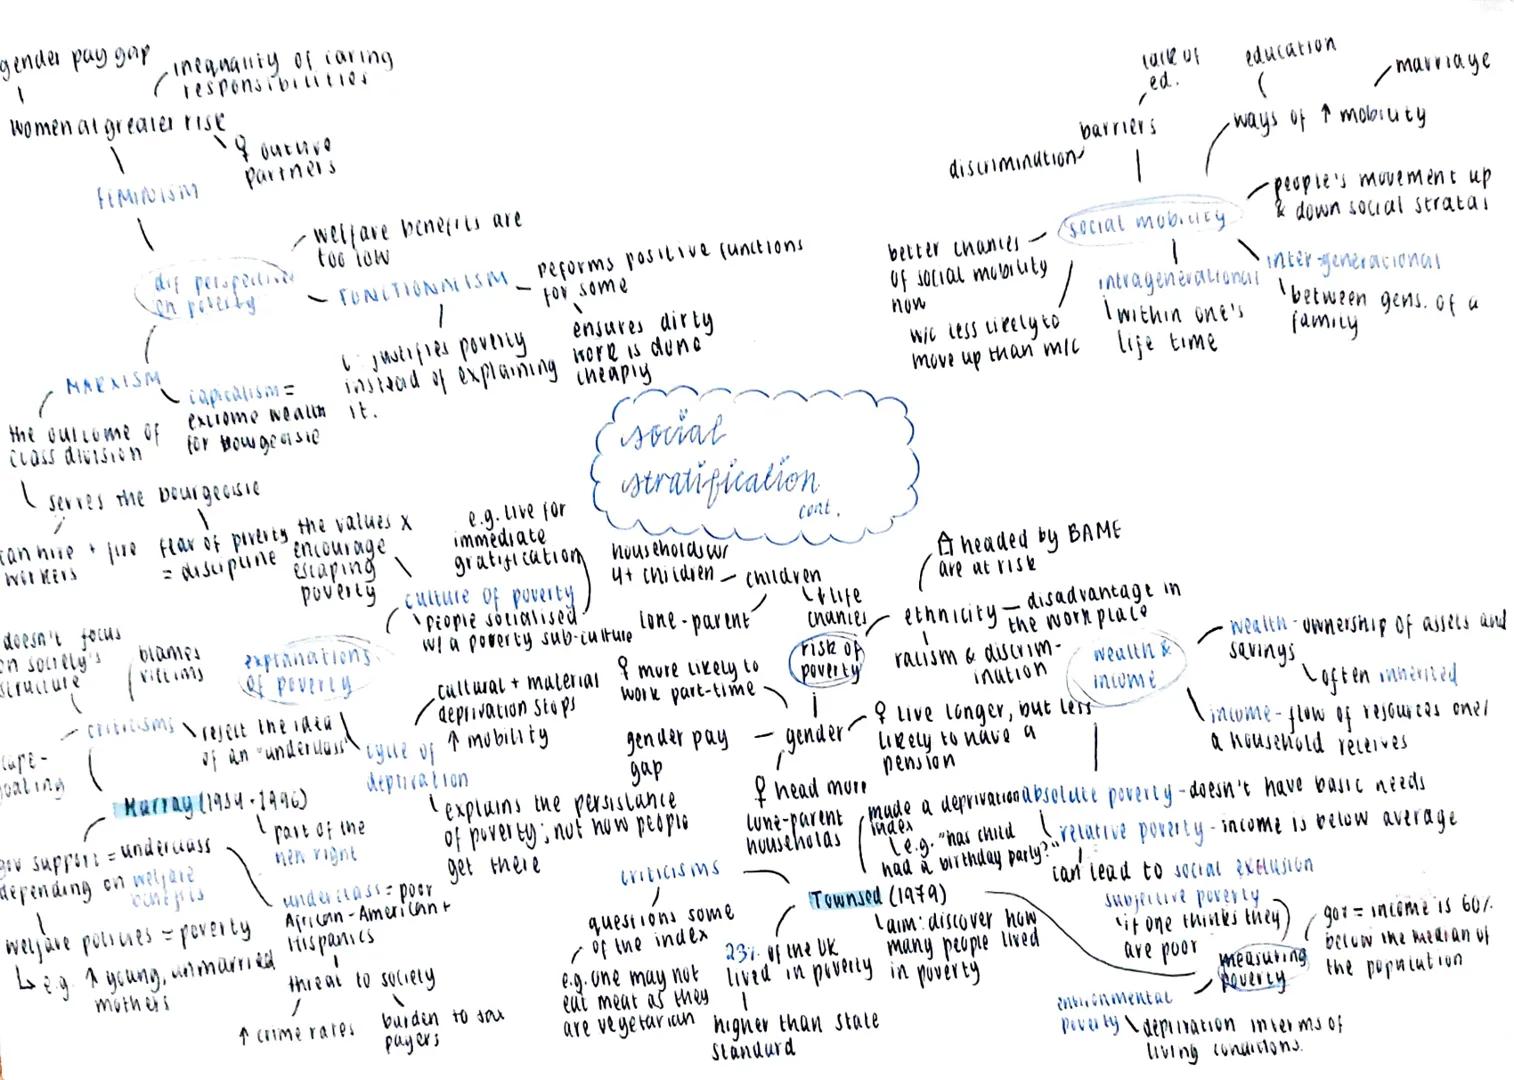 gender pay gap
inequality of caring
responsibilities
women at greater risk
♀ outlive
partners
FEMINISM
dif perspectives
on poverty
welfare benefits are
too low
FUNCTIONALISM
peforms positive functions
for some
ensures dirty
work is done
cheaply
justifies poverty
instead of explaining
it.
MARXISM
capitalism =
extreme wealth
for bourgeoisie
the outcome of
class division
serves the bourgeoisie
can hire + fire
workers
fear of poverty
= discipline
social
stratification
cont.
lack of
ed.
barriers
discrimination
education
marriage
ways of ↑ mobility
social mobility
people's movement up
& down social stratas
better chances
of social mobility
now
w/c less likely to
move up than m/c
intragenerational
within one's
life time
inter-generational
between gens. of a
family
the values x
encourage
escaping
poverty
e.g. live for
immediate
gratification
culture of poverty
people socialised
w/ a poverty sub-culture
explanations
of poverty
doesn't focus
on society's
structure
blames
victims
criticisms
reject the idea
of an "underclass"
cycle of
deprivation
cultural + material
deprivation stops
↑ mobility
explains the persistance
of poverty, not how people
get there
Murray (1984-1996)
part of the
new right
gov support = underclass
depending on welfare
benefits
welfare policies = poverty
e.g. ↑ young, unmarried
mothers
underclass = poor
African-American +
Hispanics
threat to society
↑ crime rates
burden to tax
payers
households w/
4+ children
children
lone-parent
↓ life
chances
risk of
poverty
ethnicity
headed by BAME
are at risk
disadvantage in
the workplace
racism & discrim-
ination
♀ more likely to
work part-time
gender pay
gap
gender
♀ live longer, but less
likely to have a
pension
♀ head more
lone-parent
households
wealth &
income
wealth - ownership of assets and
savings
often inherited
income - flow of resources one/
a household receives
absolute poverty - doesn't have basic needs
relative poverty - income is below average
can lead to social exclusion
subjective poverty
if one thinks they
are poor
measuring
poverty
gov = income is 60%
below the median of
the population
environmental
poverty
deprivation in terms of
living conditions.
Townsed (1979)
made a deprivation
index
e.g. "has child
had a birthday party?"
aim: discover how
many people lived
in poverty
23% of the UK
lived in poverty
higher than state
standard
criticisms
questions some
of the index
e.g. one may not
eat meat as they
are vegetarian